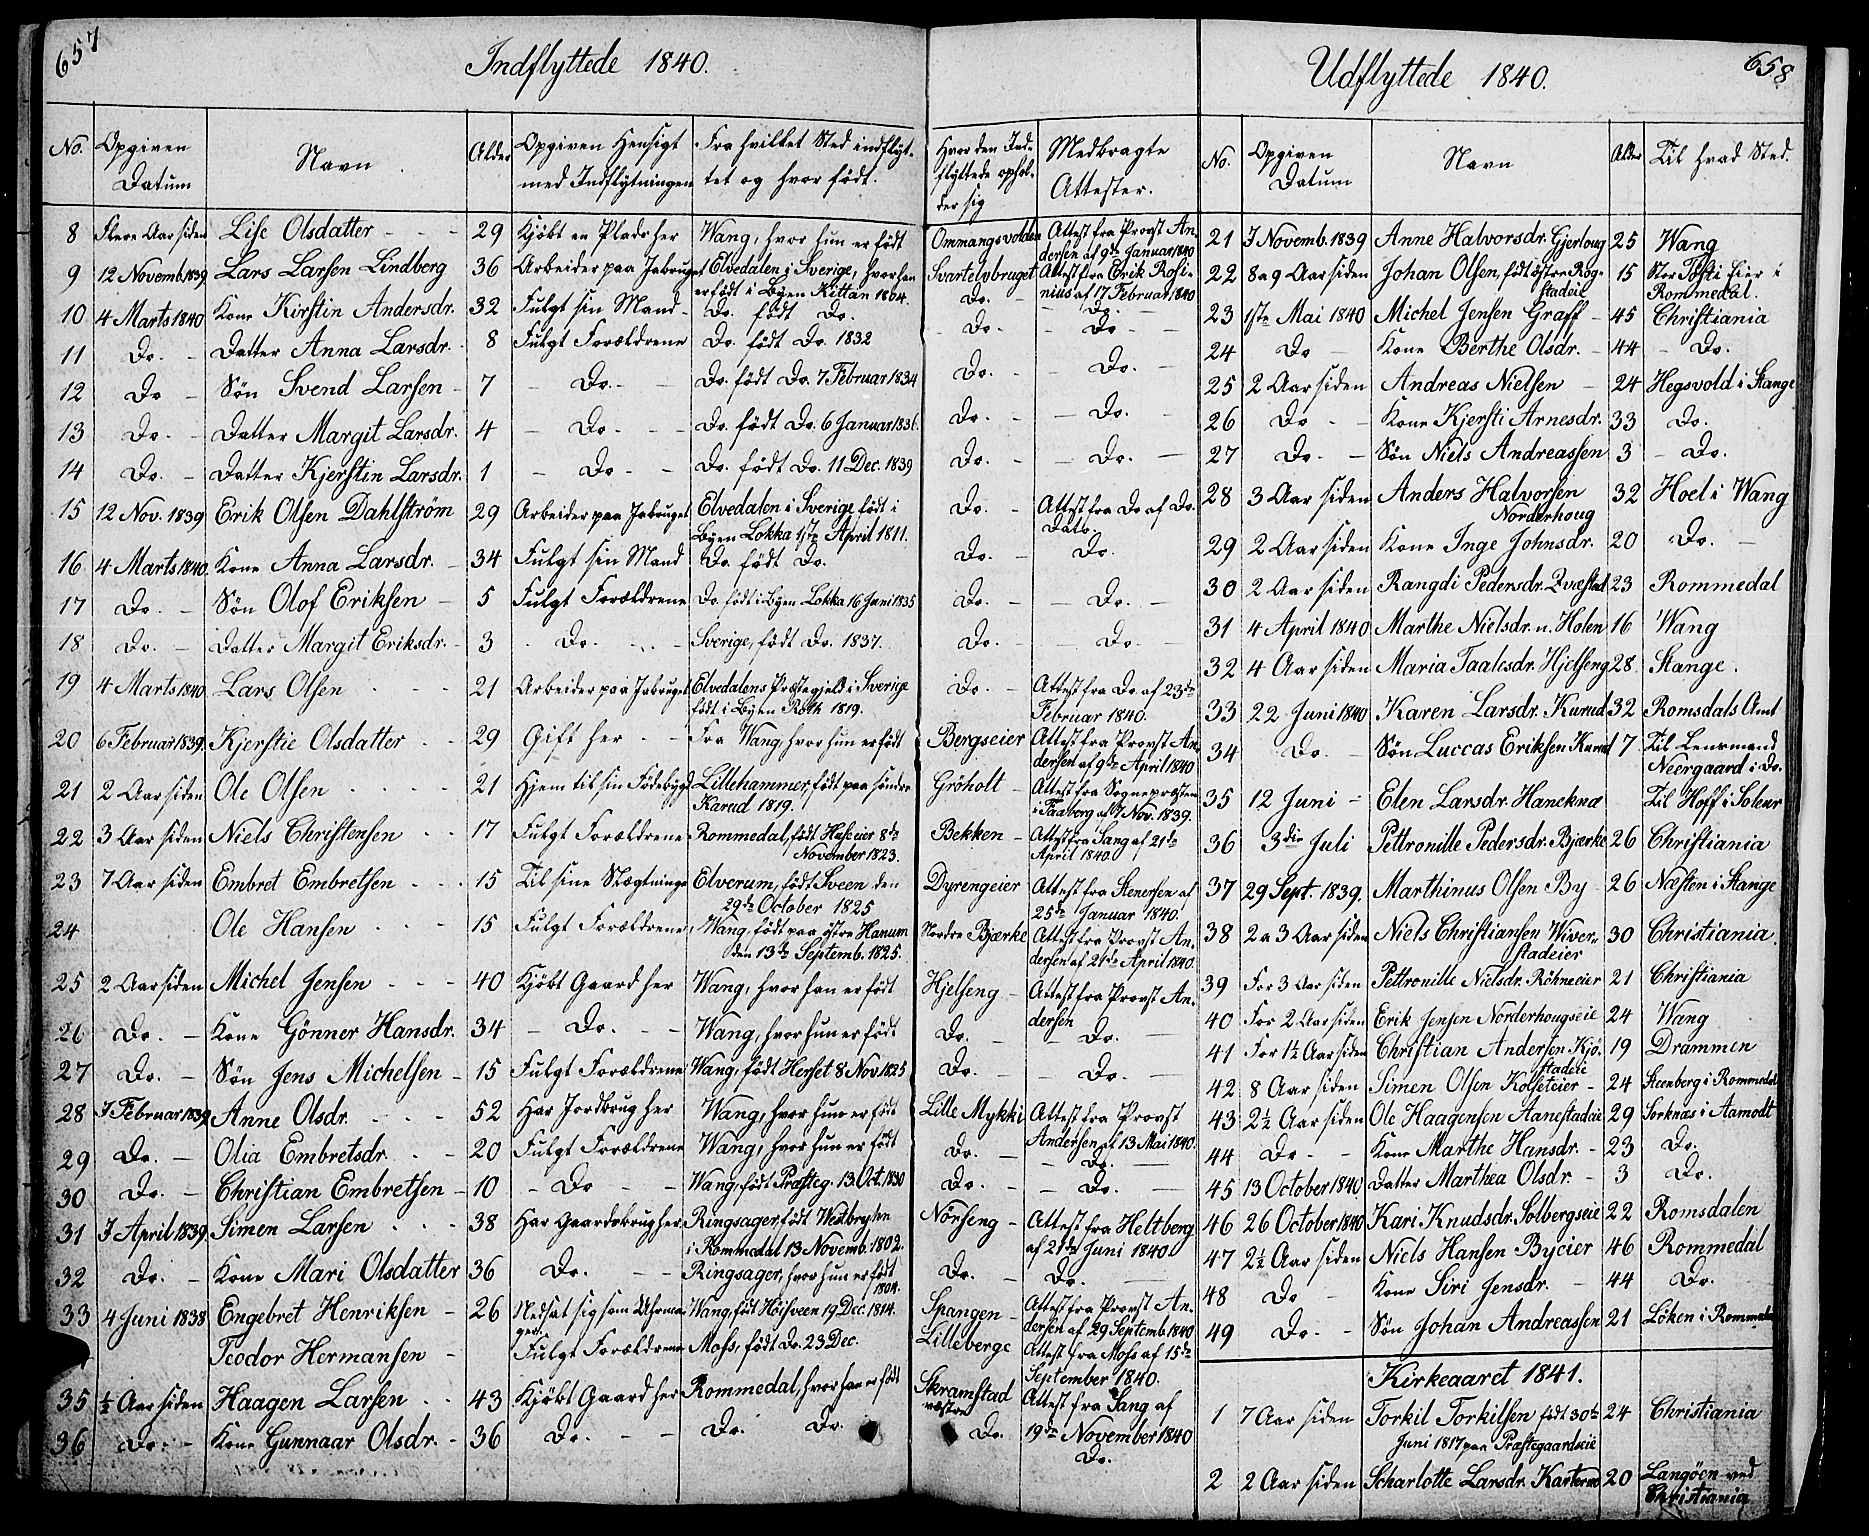 657
Indflyttede 1840.
No. Opgiven Datum Navn Alder Opgiven Hensigt med Indflytningen Fra hvilket Sted indflyttet og hvor født. Hvor den Indflyttede opholder sig Medbragte Attester.
8 Flere Aar siden Lise Olsdatter 29 Kjöbt en Plads her Wang, hvor hun er født Ommangsvolden Attest fra Provst Andersen af 9de Januar 1840
9 12 Novemb. 1839 Lars Larsen Lindberg 36 Arbeider paa Jabruget Elvedalen i Sverige, hvor han er født i Byen Kittan 1804. Svartelvbruget Attest fra Erik Rosinius af 17 Februar 1840
10 4 Marts 1840 Kone Kirstin Andersdr. 32 Fulgt sin Mand Do. født Do. Do. Do.
11 Do. Datter Anna Larsdr. 8 Fulgt Forældrene Do. født Do. 1832 Do. Do.
12 Do Søn Svend Larsen 7 Do. Do. født Do. 7 Februar 1834 Do. Do.
13 Do. Datter Margit Larsdr. 4 Do. Do. født Do. 6 Januar 1836. Do. Do.
14 Do. Datter Kjerstin Larsdr. 1 Do Do. født Do. 11 Dec. 1839 Do. Do.
15 12 Nov. 1839 Erik Olsen Dahlström 29 Arbeider paa Jabruget Elvedalen i Sverige, født i Byen Lokka 1ste April 1811. Do. Attest fra Do af Do. Dato.
16 4 Marts 1840. Kone Anna Larsdr. 34 Fulgt sin Mand Do. født Do. Do. Do.
17 Do. Søn Olof Eriksen 5 Fulgt Forældrene Do. født i Byen Lokka 16 Juni 1835 Do. Do.
18 Do. Datter Margit Eriksdr. 3 Do. Sverige, født Do. 1837. Do. Do.
19 4 Marts 1840. Lars Olsen 21 Arbeider paa Jabruget Elvedalens Præstegjeld i Sverige født i Byen Roth 1819. Do. Attest fra Do af 23de Februar 1840.
20 6 Februar 1839. Kjerstie Olsdatter 29 Gift her Fra Wang, hvor hun er født Bergseier Attest fra Provst Andersen af 9de April 1840
21 2 Aar siden Ole Olsen 21 Hjem til sin Fødebygd Lillehammer, født paa søndre Karud 1819. Gröholt Attest fra Sognepræsten i Faaberg af 7 Nov. 1839.
22 3 Aar siden Niels Christensen 17 Fulgt Forældrene Rommedal, født Huseier 8de November 1823. Bekken Attest fra Sang af 21de April 1840.
23 7 Aar siden Embret Embretsen 15 Til sine Slægtninge Elverum, født Sveen den 29de October 1825 Dyrengeier Attest fra Stenersen af 25de Januar 1840.
24 Ole Hansen 15 Fulgt Forældrene Wang, født paa østre Hanum den 13de Septemb. 1825. Nordre Bjærke Attest fra Provst Andersen af 21de April 1840.
25 2 Aar siden Michel Jensen 40 Kjöbt Gaard her Wang, hvor han er født Hjelseng Attest fra Provst Andersen
26 Do. Kone Gönner Hansdr. 34 Do. Wang, hvor hun er født Do. Do.
27 Do. Søn Jens Michelsen 15 Fulgt Forældrene Wang, født Herset 8 Nov. 1825 Do. Do.
28 7 Februar 1839. Anne Olsdr. 52 Har Jordbrug her Wang, hvor hun er født Lille Mykki Attest fra Provst Andersen af 13 Mai 1840.
29 Do. Olia Embretsdr. 20 Fulgt Forældrene Wang, hvor hun er født Do. Do.
30 Do. Christian Embretsen 10 Do Wang, født Præsteg. 13 Oct. 1830 Do. Do.
31 7 April 1839. Simen Larsen 38 Har Gaardsbrug her Ringsager, født Westbryhn i Rommedal 13 Novemb. 1802. Nörseng Attest fra Heltberg af 21de Juni 1840.
32 Do. Kone Mari Olsdatter 36 Do. Ringsager, hvor hun er født 1804. Do. Do.
33 4 Juni 1838 Engebret Henriksen 26 Nedsat sig som Uhrmager Wang, født Höisveen 19 Dec. 1814. Spangen Attest fra Provst Andersen af 29 Septemb. 1840
Teodor Hermansen Fulgt Forældrene Moss, født Do. 23 Dec. Lilleberge Attest fra Moss af 15de September 1840.
35 ½ Aar siden Haagen Larsen 43 Kjöbt Gaard her Rommedal, hvor han er født Skramstad vestre Attest fra Sang af 19de November 1840
36 Do. Kone Gunnaar Olsdr. 36 Do. Do. Do. Do. Do.
658
Udflyttede 1840.
No. Opgiven Datum Navn Alder Til hvad Sted.
21 7 Novemb. 1839 Anne Halvorsdr. Gjerloug 25 Wang
22 8 a 9 Aar siden Johan Olsen, født østre Rogstadeie 15 Stor Tofti Eier i Rommedal.
23 1ste Mai 1840 Michel Jensen Graff 45 Christiania
24 Do Kone Berthe Olsdr. 44 Do.
25 2 Aar siden Andreas Nielsen 24 Hegsvold i Stange
26 Do Kone Kjersti Arnesdr. 33 Do.
27 Do. Søn Niels Andreassen 3 Do.
28 3 Aar siden Anders Halvorsen Norderhoug 32 Hoel i Wang
29 2 Aar siden Kone Inge Johnsdr. 20 Do.
30 2 Aar siden Rangdi Pedersdr. Qvæstad 23 Rommedal
31 4 April 1840 Marthe Nielsdr. n. Holen 16 Wang
32 4 Aar siden Maria Taalesdr. Hjelseng 28 Stange.
33 22 Juni 1840 Karen Larsdr. Kurud 32 Romsdals Amt
34 Do. Søn Luccas Eriksen Kurud 7 Til Lensmand Neergaard i Do.
35 12 Juni Elen Larsdr. Haneknæ Til Hoff i Soleur
36 3die Juli Pettronille Pedersdr. Bjærke 26 Christiania
37 29 Sept. 1839. Marthinus Olsen By 26 Næsten i Stange
38 2 a 3 Aar siden Niels Christiansen Wiverstadeier 30 Christiania.
39 For 3 Aar siden Pettronille Nielsdr. Röbneier 21 Christiania
40 For 2 Aar siden Erik Jensen Norderhougseie 24 Wang
41 For 1½ Aar siden Christian Andersen Kjöstadeie 19 Drammen
42 8 Aar siden Simen Olsen Kolseteier 24 Steenberg i Rommedal
43 2½ Aar siden Ole Haagensen Aanestadeie 29 Sorknæs i Aamodt
44 Do Kone Marthe Hansdr. 23 Do.
45 13 October 1840 Datter Marthea Olsdr. 3 Do.
46 26 October 1840 Kari Knudsdr. Solbergseie 22 Romsdalen
47 2½ Aar siden Niels Hansen Byeier 46 Rommedal
48 Do Kone Siri Jensdr. 44 Do.
49 Do. Søn Johan Andreassen 21 Löken i Rommedal
Kirkeaaret 1841.
1 7 Aar siden Torkil Torkilsen født 30te Juni 1817 paa Præstegaardseie 24 Christiania
2 2 Aar siden Scharlotte Larsdr. Karterud 20 Langöen ved Christiania